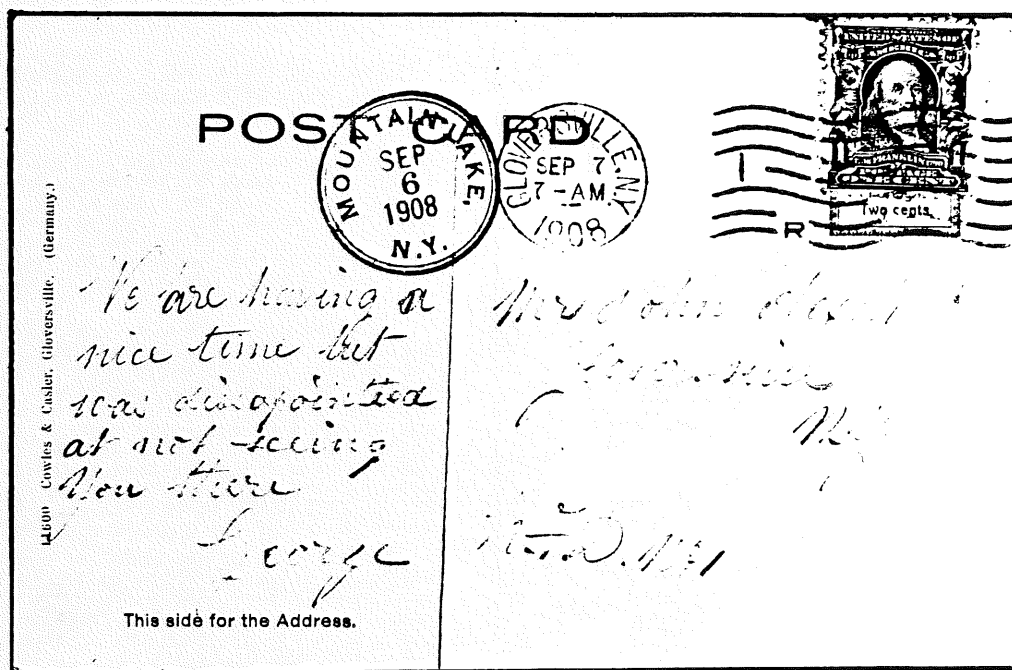 POST CARD
MOUNTAIN LAKE,
SEP
6
1908
N.Y.
GLOVERSVILLE, N.Y.
SEP 7
7-AM
1908
R
UNITED STATES OF
Two cents.
11600 Cowles & Casler, Gloversville. (Germany.)
We are having a
nice time but
was disapointed
at not seeing
you there
George
Mr John
R.F.D. No 1
This side for the Address.